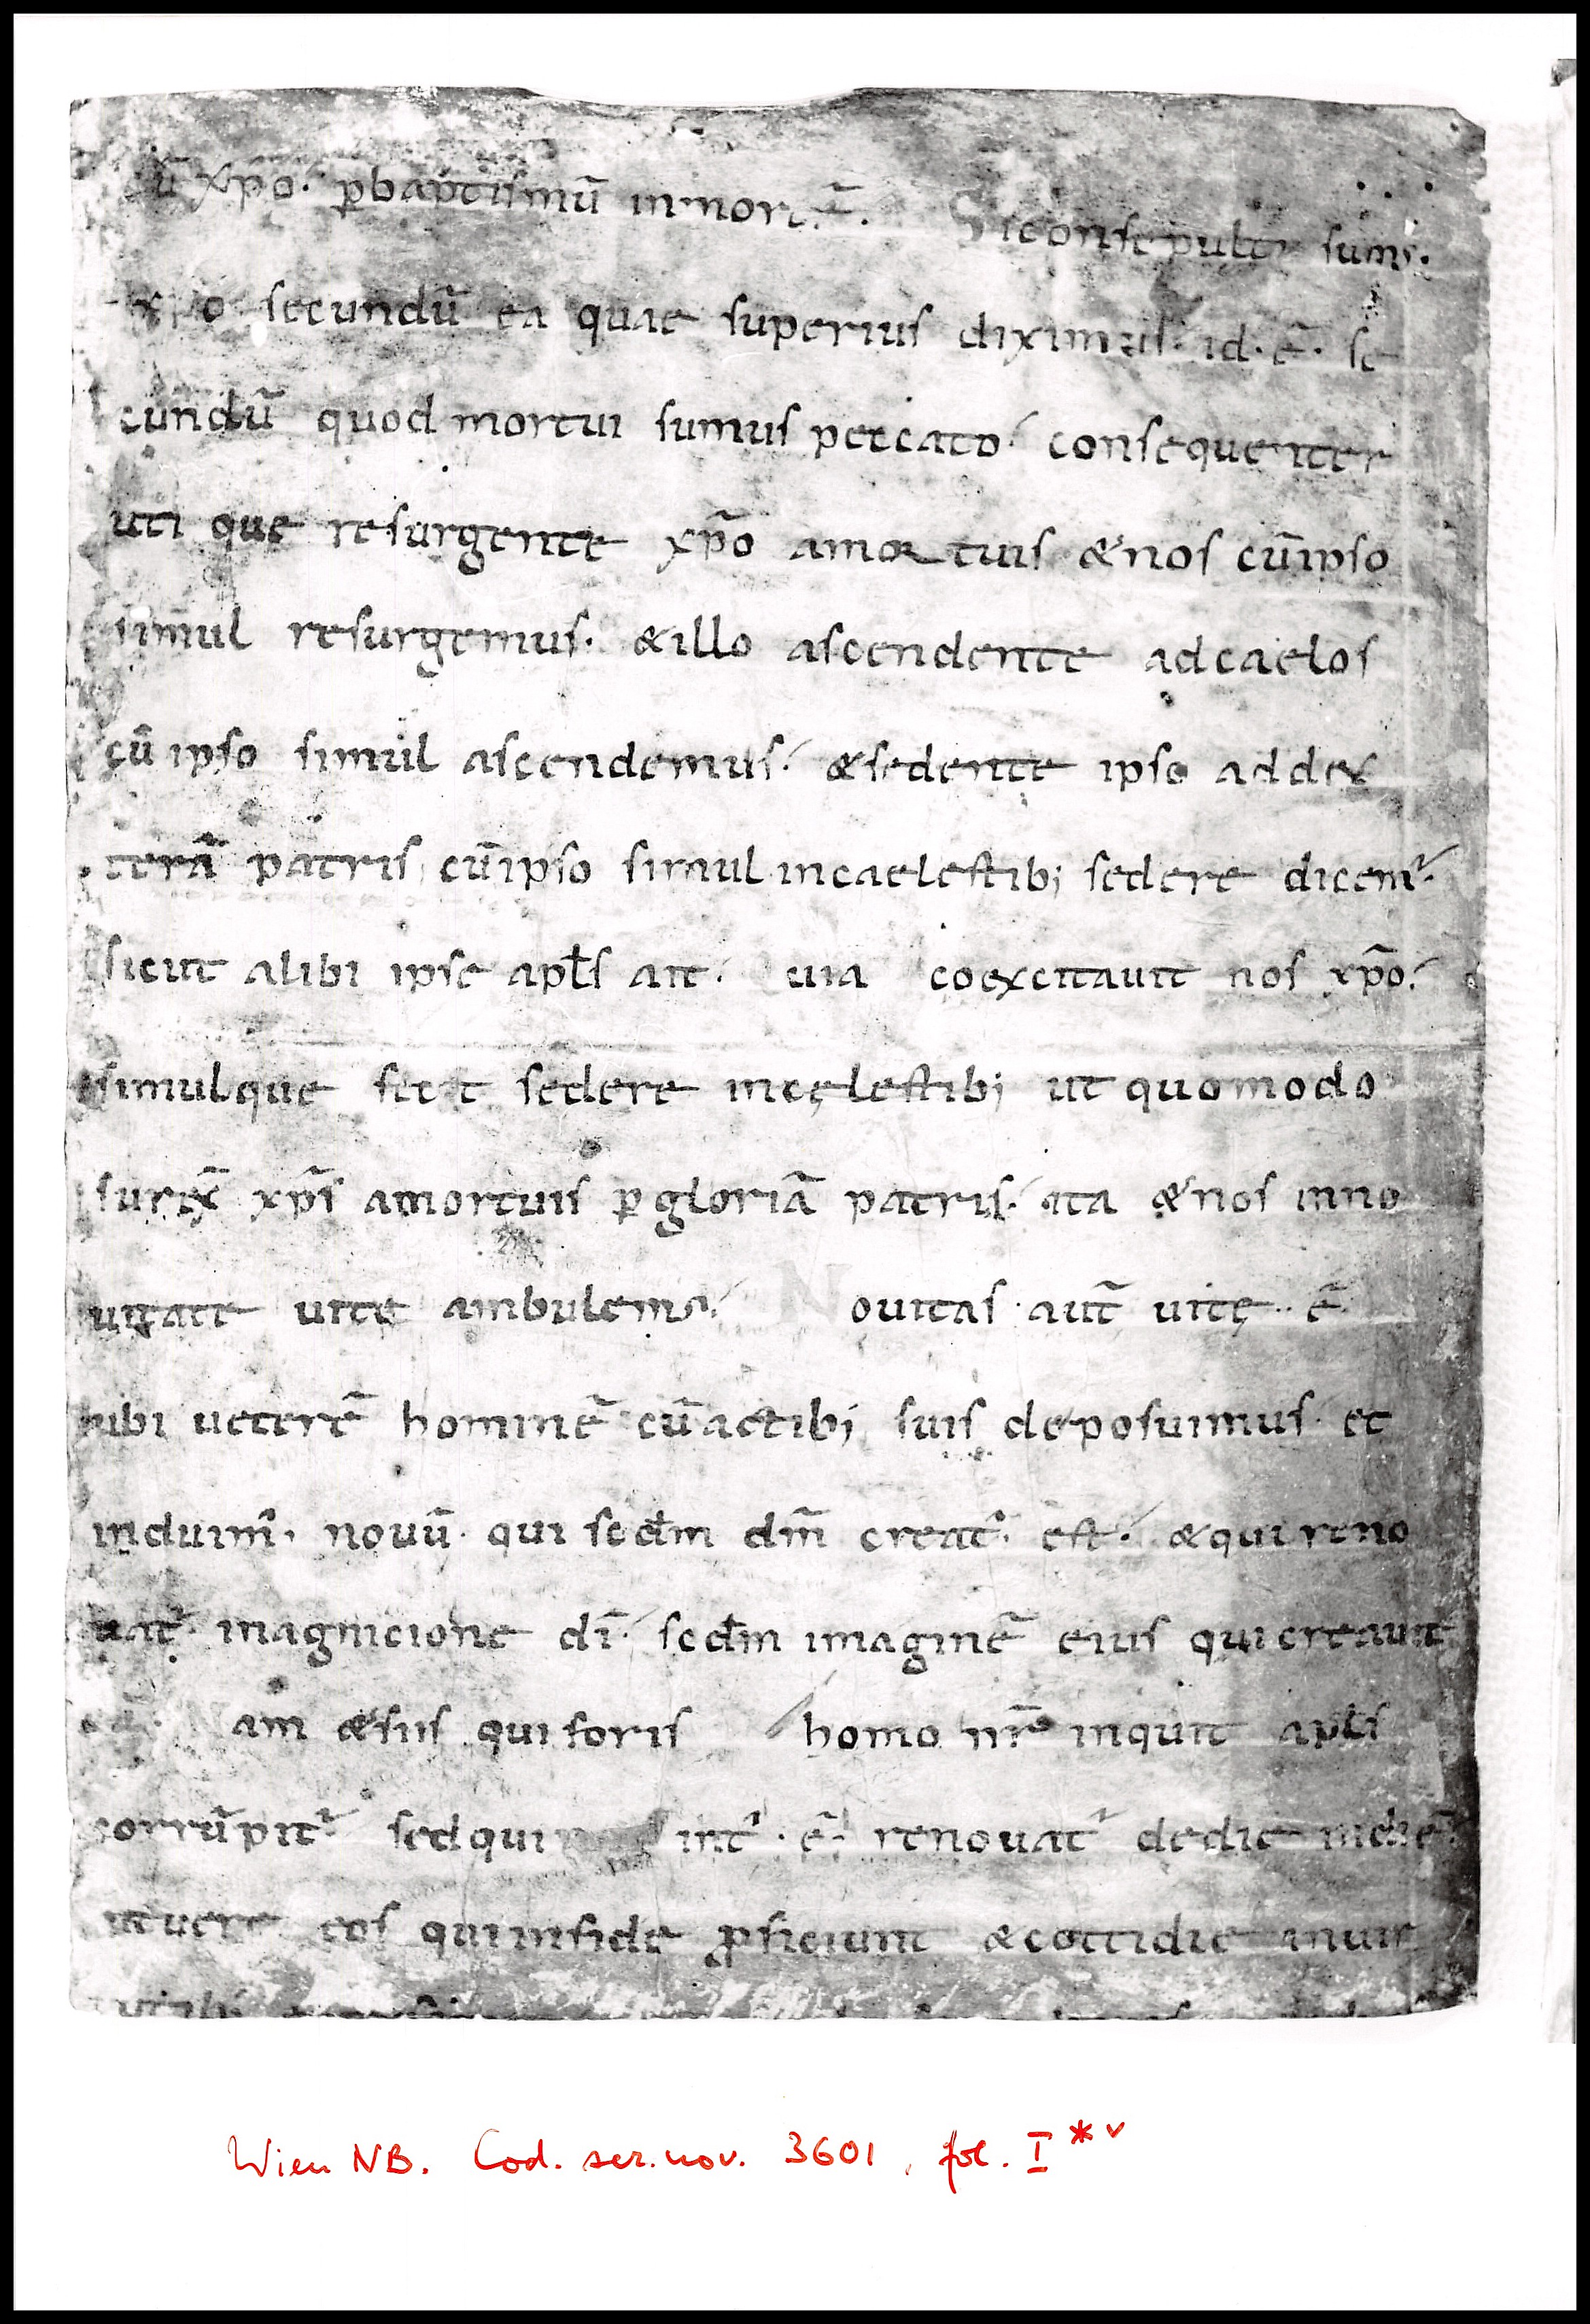 cū xp̄o. ꝑbaptismū inmortē. Siconsepulti sum᾿.
xp̄o secundū ea quae superius diximus. id.ē. se
cundū quod mortui sumus peccato. consequenter
uti que resurgente xp̄o amortuis &nos cūipso
simul resurgemus. &illo ascendente adcaelos
cū ipso simul ascendemus. &sedente ipso addex
terā patris cūipso simul incaelestib; sedere dicem᾿.
sicut alibi ipse apłs ait. uia coexcitauit nos xp̄o.
simulque fecit sedere incęlestib; ut quomodo
surex̄ xp̄s amortuis ꝑ gloriā patris. ita &nos inno
uitate uite ambulem᾿. Nouitas aut̄ uitę. ē
ubi ueterē hominē cūactib; suis deposuimus et
induim᾿. nouū. qui scdm dm̄ creat᾿. est. &qui reno
uat᾿. inagnicione dī. scdm imaginē eius quicreauit
am &sis qui foris homo nr̄ inquit apłs
corrūpit᾿ sedqui int᾿.ē. renouat᾿ dedie indiē.
utuere eos quiinfide ꝓficiunt &cottidie inuir
Wien NB. Cod. ser. nov. 3601, fol. I*v